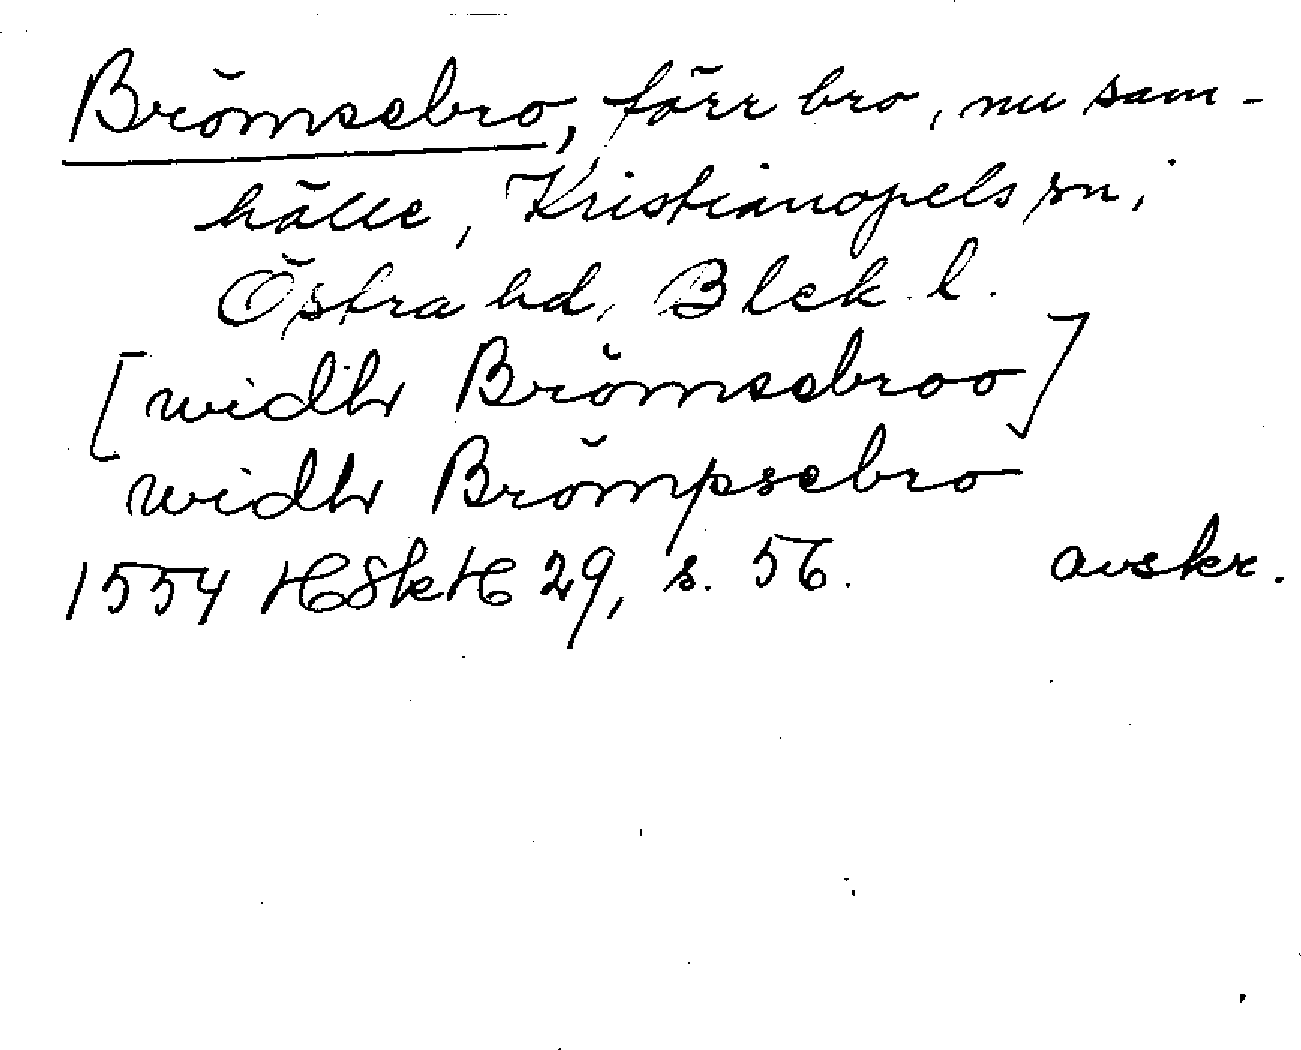 Brömsebro, förr bro, nu sam-
hälle, Kristianopels sn,
Östra hd, Blek. l.
[widh Brömsebroo]
widh Brömpsebro
1554 HSkH 29, s. 56. avskr.